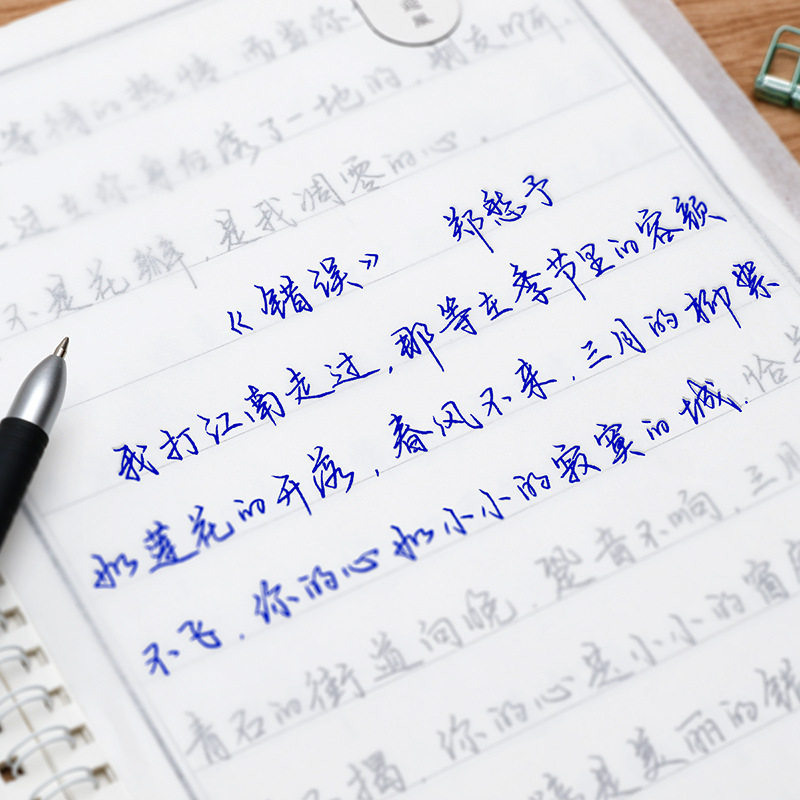 等待的热情.而当你
过在你身后落了一地的,朋友啊.
不是花瓣,是我凋零的心.
《错误》 郑愁予
我打江南走过,那等在季节里的容颜
如莲花的开落,春风不来,三月的柳絮
不飞.你的心如小小的寂寞的城.恰
青石的街道向晚.跫音不响,三月
揭.你的心是小小的窗
是美丽的错